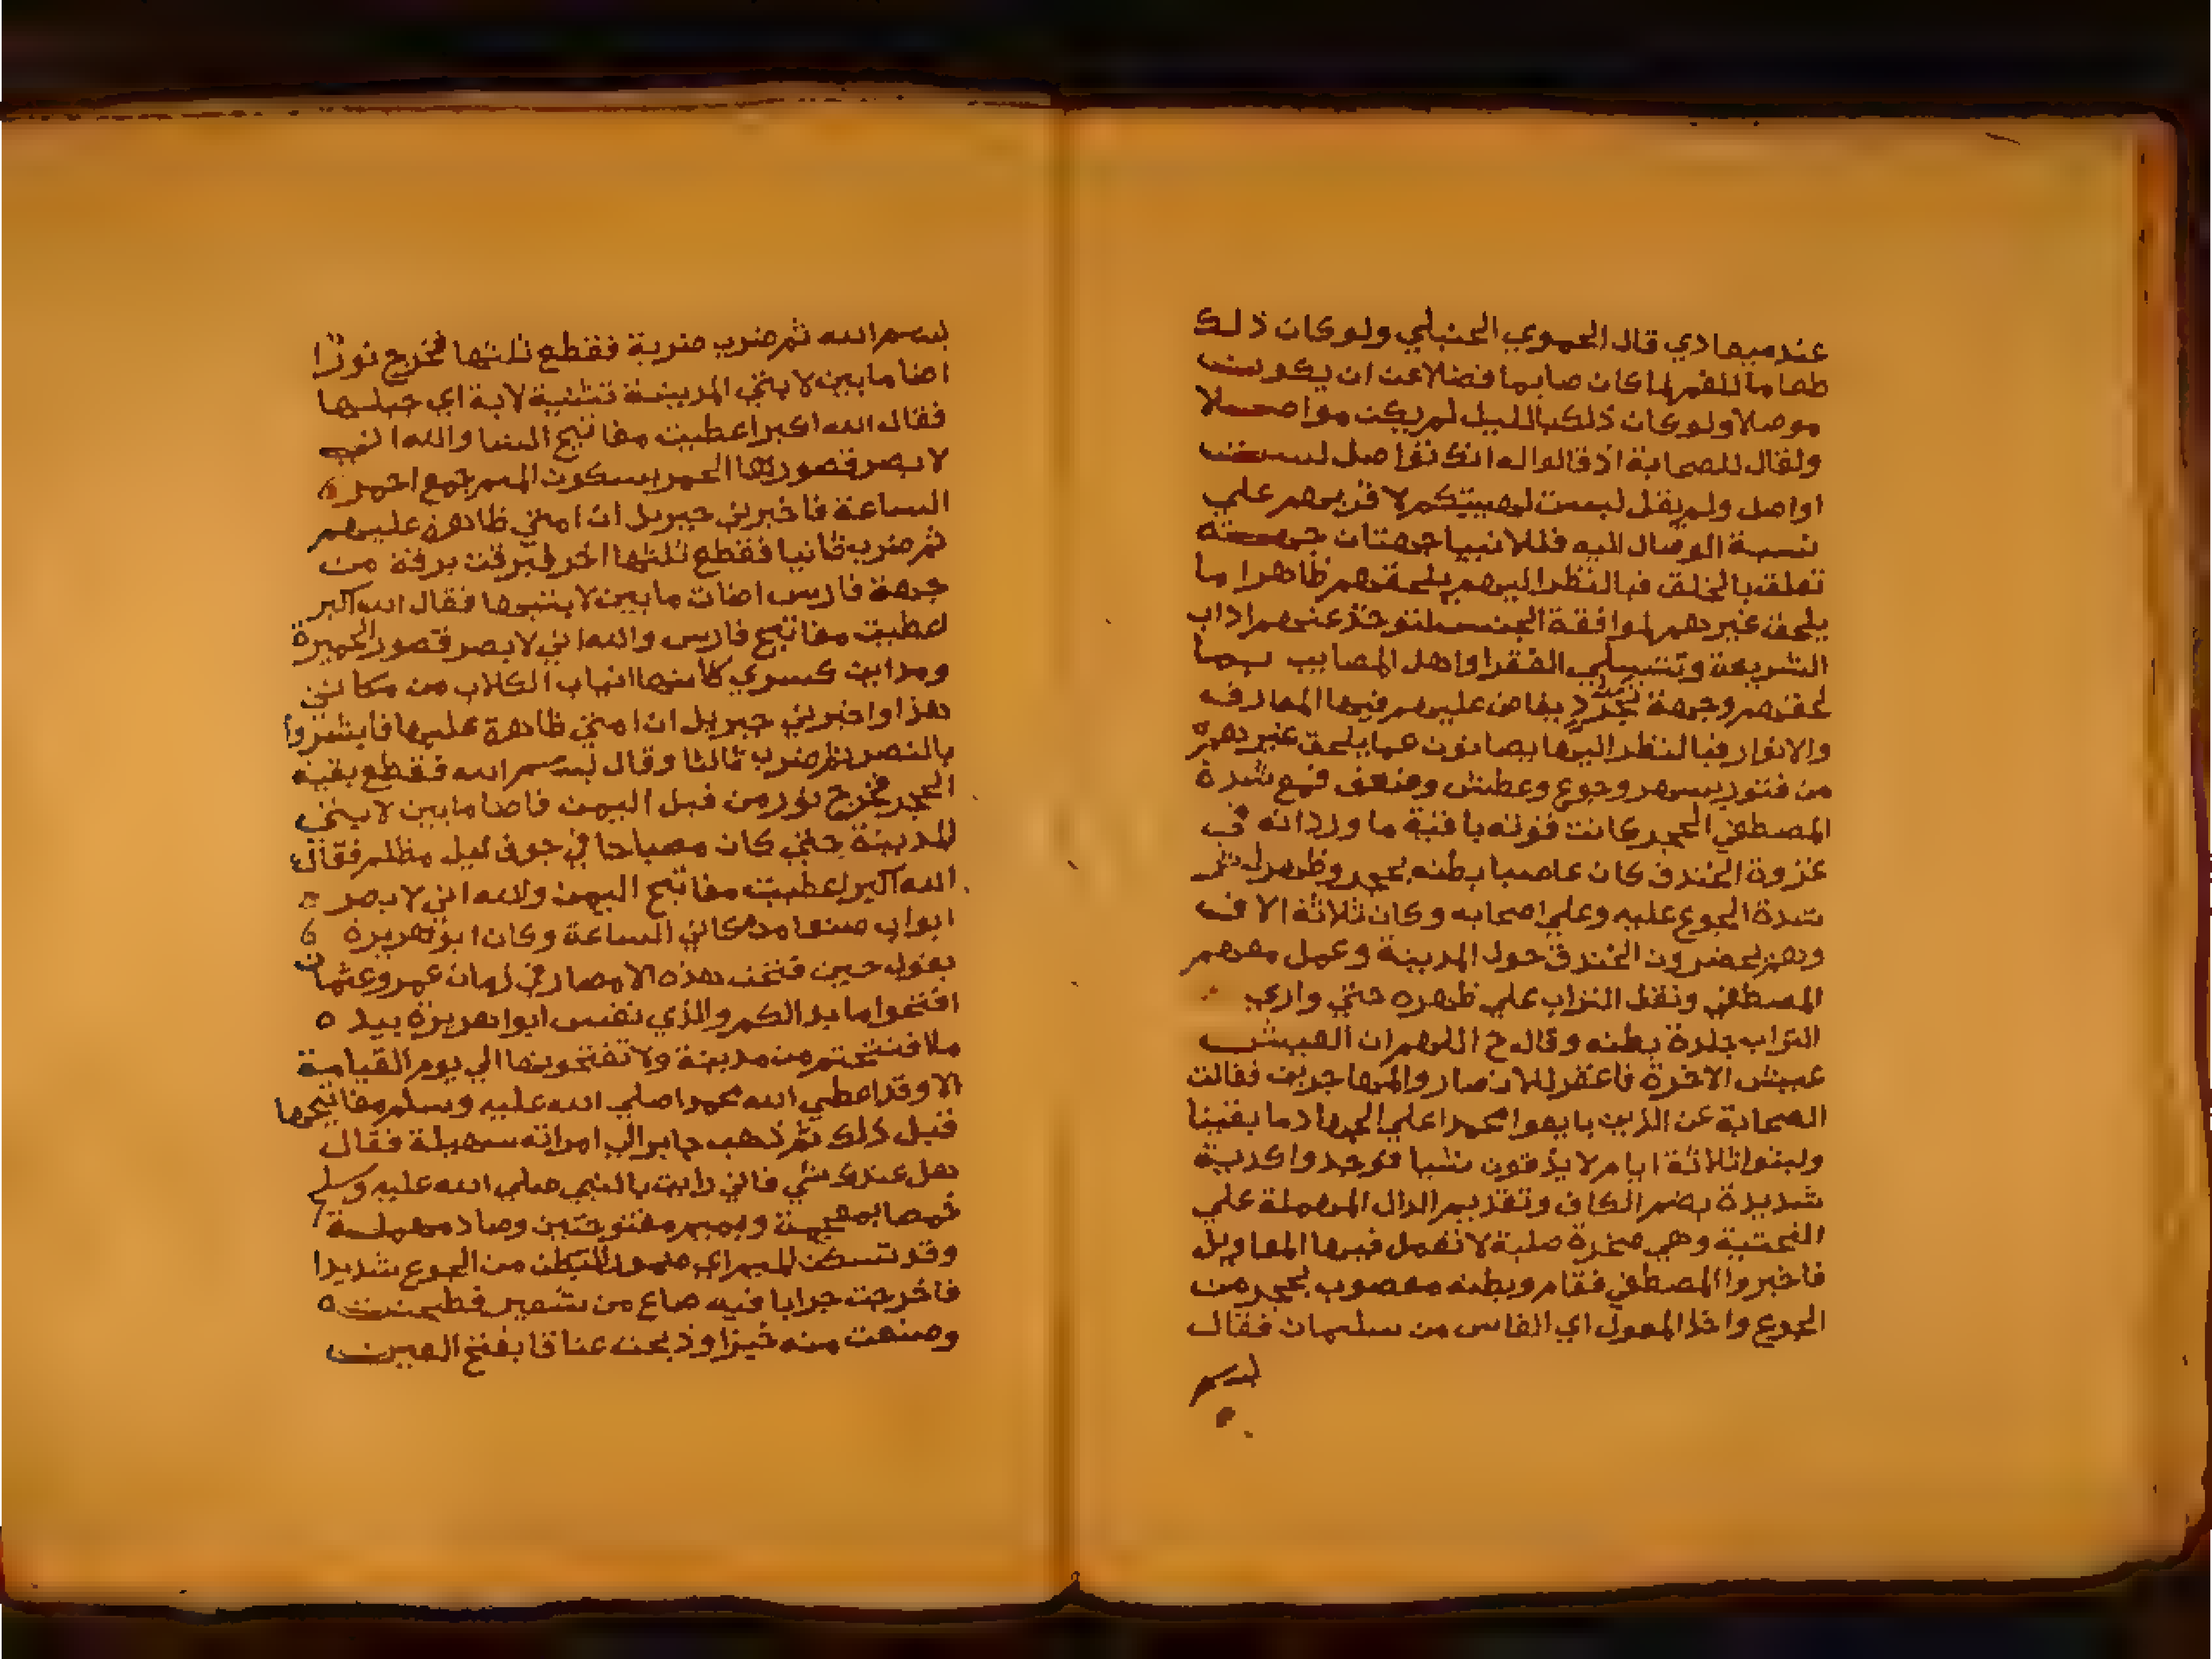 عندميعادي قال الحموي الحنبلي ولوكان ذلك
طعاما للفم لما كان صايما فضلا عن ان يكون
موصلا ولوكان ذلك بالليل لم يكن مواصلا
ولقال للصحابة اذ قالوا له انك تواصل لست
اواصل ولم يقل لست كهيئتكم لا قربهم علي
نسبة الوصال اليه فللانبيا جهتان جهة
تعلق بالخلق فبالنظر اليهم يلحقهم ظاهرا ما
يلحق غيرهم لموافقة الجنس لتوخذ عنهم اداب
الشريعة وتتسلي الفقرا واهل المصايب بما
لحقهم وجهة تجرد يفاض عليهم فيها المعارف
والانوار فبالنظر اليها يصانون عما يلحق غيرهم
من فتور بسهر وجوع وعطش وضعف فمع شدة
المصطفي الحجر كانت قوته باقية ما ورد انه في
غزوة الخندق كان عاصبا بطنه بحجر وظهر له اثر
شدة الجوع عليه وعلي اصحابه وكان ثلاثة الاف
وهم يحفرون الخندق حول المدينة وعمل معهم
المصطفي ونقل التراب علي ظهره حتي واري
التراب جلدة بطنه وقال ح اللهم ان العيش
عيش الاخرة فاغفر للانصار والمهاجرين فقالت
الصحابة عن الذين بايعوا محمدا علي الجهاد ما بقينا
ولبثوا ثلاثة ايام لا يذقون شيا فوجدوا كدية
شديدة بضم الكاف وتقديم الدال المهملة علي
التحتية وهي صخرة صلبة لا تعمل فيها المعاويل
فاخبروا المصطفي فقام وبطنه معصوب بحجر من
الجوع واخذ المعول اي الفاس من سليمان فقال
بسم
بسم الله ثم ضرب ضربة فقطع ثلثها فخرج نورا
اضا ما بين لابتي المدينة تثنية لابة اي جبلها
فقال الله اكبر اعطيت مفاتيح الشا والله اني
لابصر قصورها الحمر بسكون الميم جمع احمر ه
الساعة فاخبرني جبريل ان امتي ظاهرة عليهم
ثم ضرب ثانيا فقطع ثلثها اخر فبرقت برقة من
جهة فارس اضات ما بين لابتيها فقال الله اكبر
اعطيت مفاتيح فارس والله اني لابصر قصور الحيرة
ومداين كسري كانها انياب الكلاب من مكاني
هذا واخبرني جبريل ان امتي ظاهرة عليها فابشروا
بالنصر ثم ضرب ثالثا وقال بسم الله فقطع بقية
الحجر فخرج نور من قبل اليمن فاضا ما بين لابتي
المدينة حتي كان مصباحا في جوف ليل مظلم فقال
الله اكبر اعطيت مفاتيح اليمن والله اني لابصر ه
ابواب صنعا من مكاني الساعة وكان ابو هريرة 6
يقول حين فتحت هذه الامصار في زمان عمر وعثمان
افتحوا ما بدا لكم والذي نفس ابوا هريرة بيده
ما افتتحتم من مدينة ولا تفتحونها الي يوم القيامة
الا وقد اعطي الله محمدا صلي الله عليه وسلم مفاتيحها
قبل ذلك ثم ذهب جابر الي امراته سهيلة فقال
هل عندك شي فاني رايت بالنبي صلي الله عليه وسلم
خمصا بمعجمة وبميم مفتوحتين وصاد مهملة 7
وقد تسكن الميم اي ضمور البطن من الجوع شديدا
فاخرجت جرابا فيه صاع من شعير فطحنت ه
وصنعت منه خبزا وذبحت عناقا بفتح العين